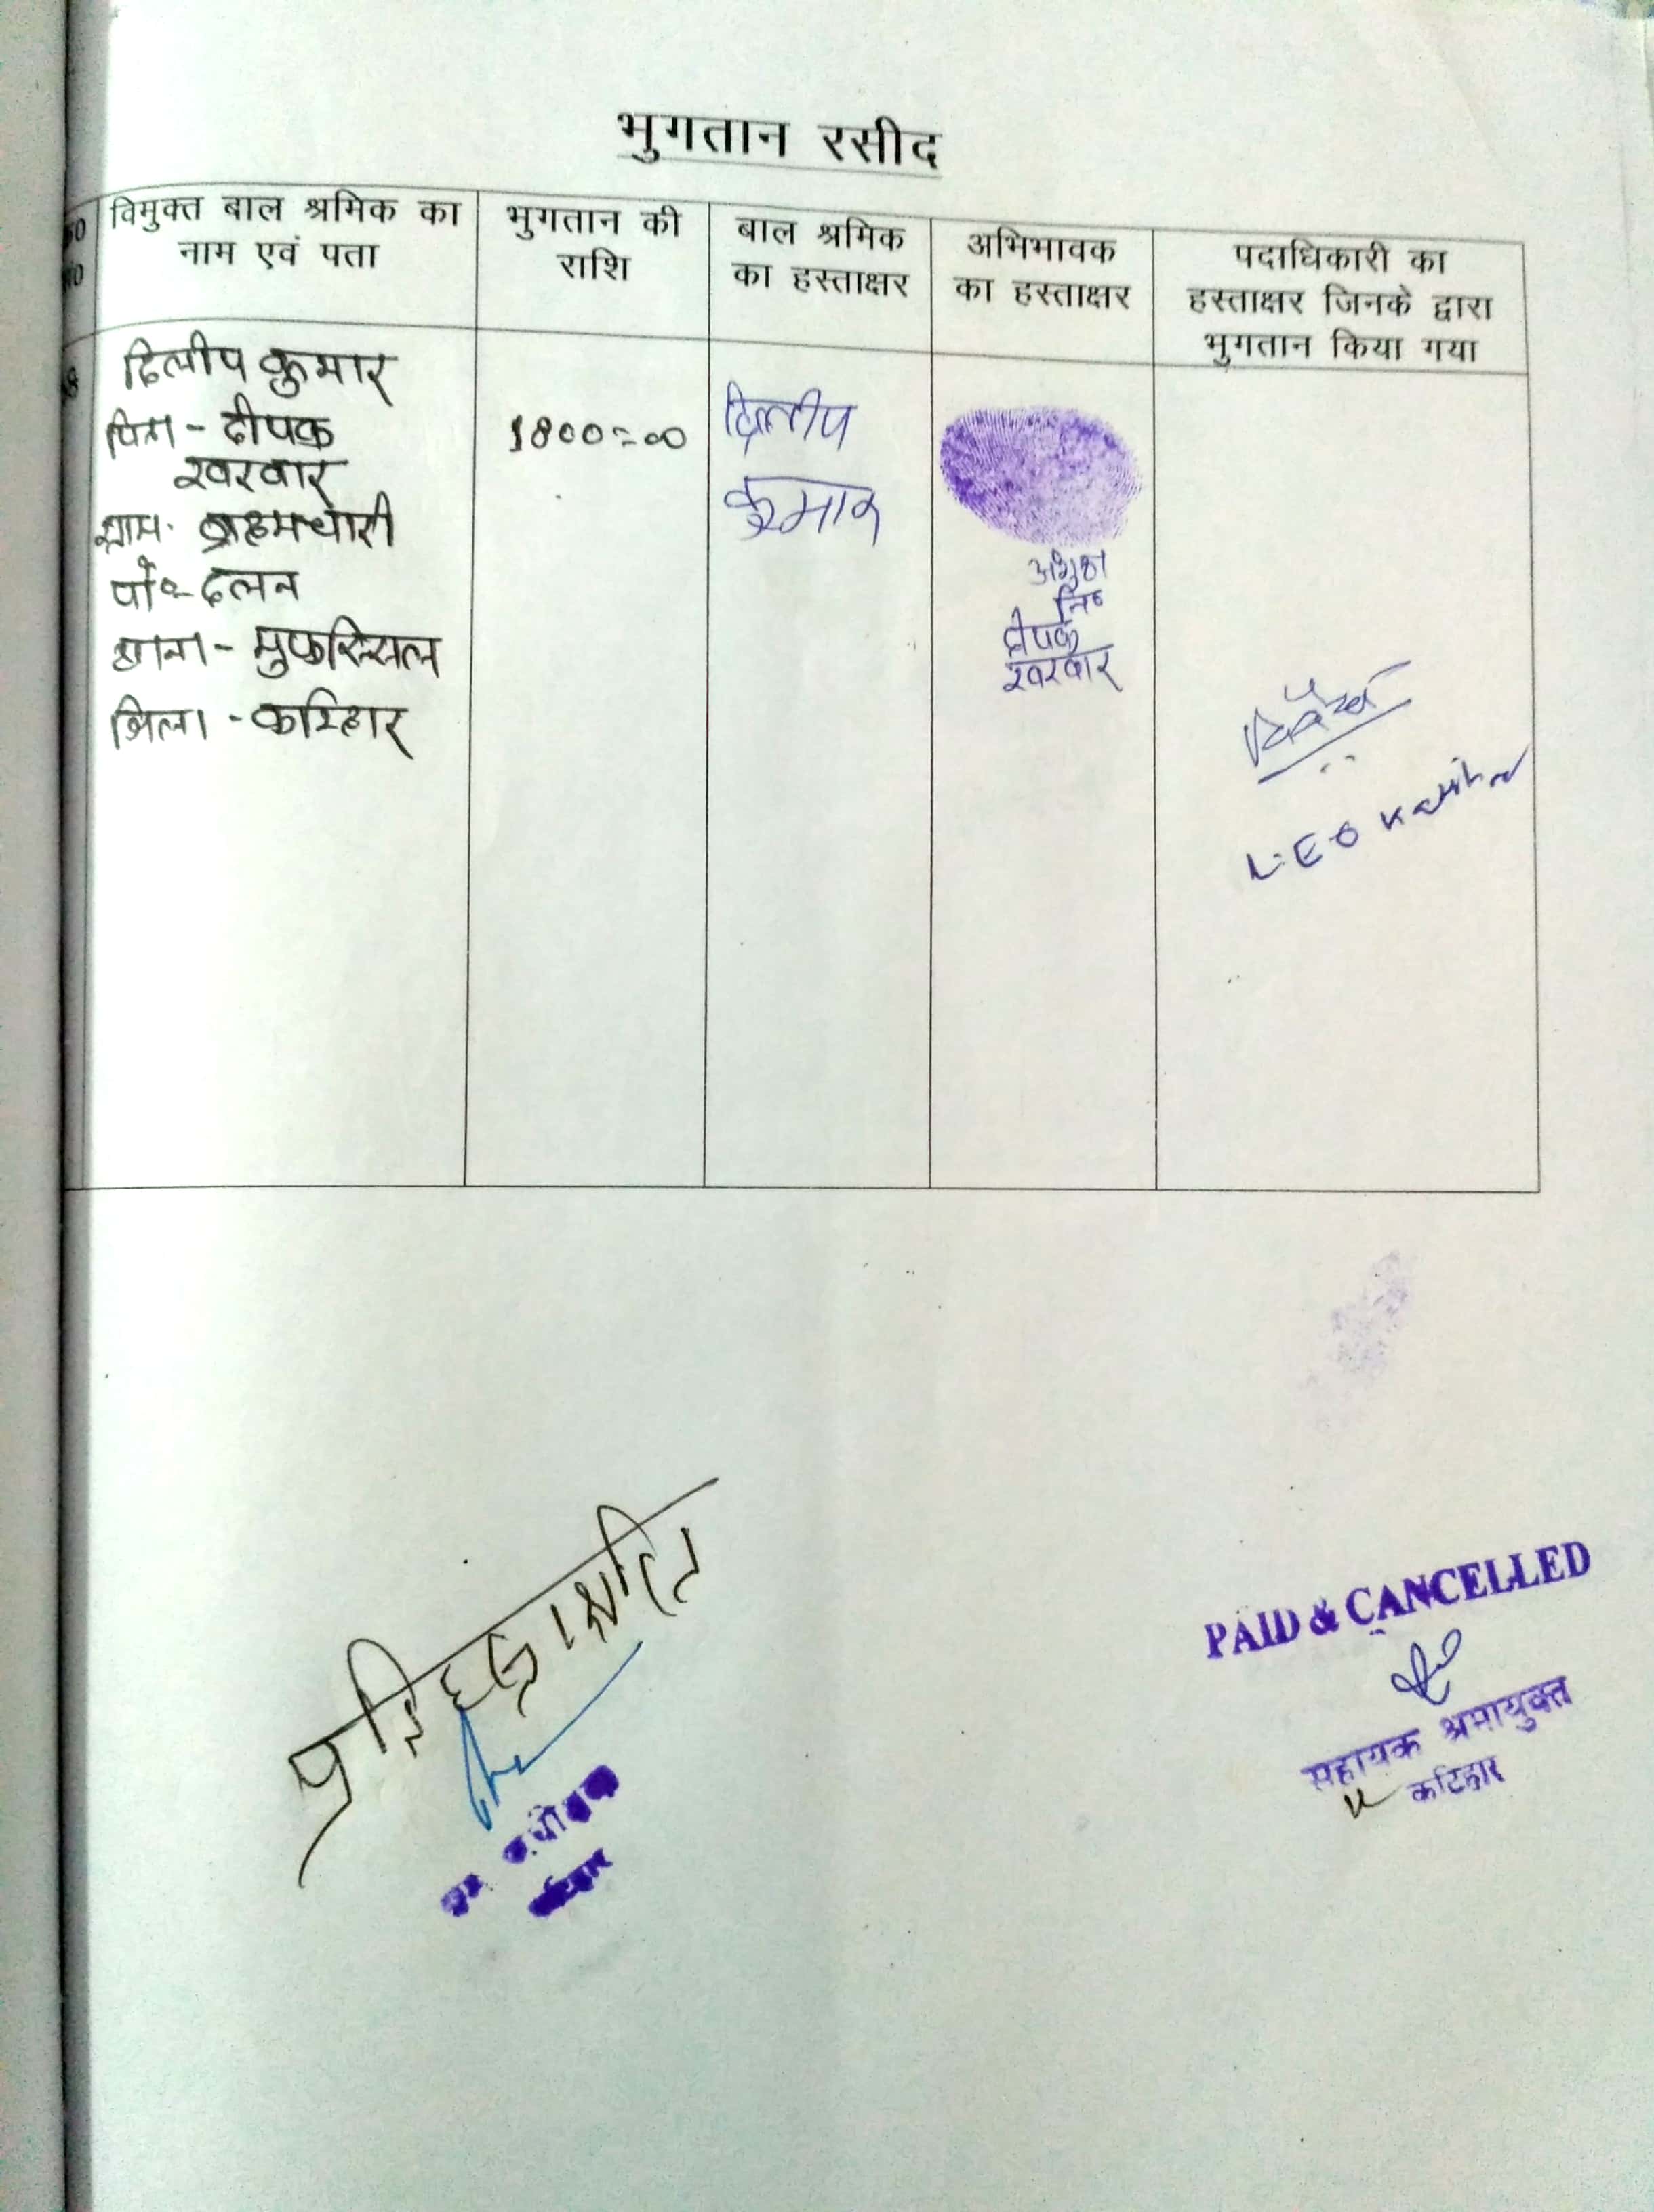 भुगतान रसीद
विमुक्त बाल श्रमिक का
नाम एवं पता
भुगतान की
राशि
बाल श्रमिक
का हस्ताक्षर
अभिभावक
का हस्ताक्षर
पदाधिकारी का
हस्ताक्षर जिनके द्वारा
भुगतान किया गया
दिलीप कुमार
पिता - दीपक
खरवार
ग्राम- ब्रह्मचारी
पो०- दलन
थाना - मुफस्सिल
जिला - कटिहार
1800=00
दिलीप
कुमार
दीपक
खरवार
L.E.O Katihar
PAID & CANCELLED
सहायक श्रमायुक्त
कटिहार